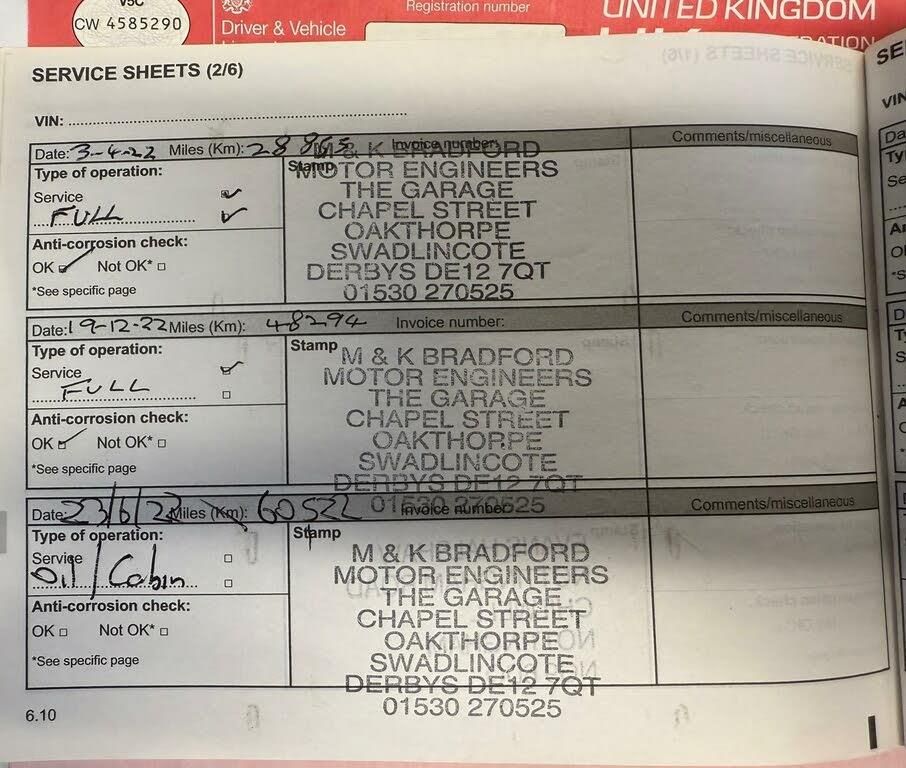 V5C
CW 4585290
Driver & Vehicle
Registration number
UNITED KINGDOM
SERVICE SHEETS (2/6)
VIN:
Date: 3-4-22 Miles (Km): 28 865 Invoice number:
Comments/miscellaneous
Type of operation:
Service
FULL
Anti-corrosion check:
OK Not OK*
*See specific page
Stamp
M & K BRADFORD
MOTOR ENGINEERS
THE GARAGE
CHAPEL STREET
OAKTHORPE
SWADLINCOTE
DERBYS DE12 7QT
01530 270525
Date: 19-12-22 Miles (Km): 48294 Invoice number:
Comments/miscellaneous
Type of operation:
Service
FULL
Anti-corrosion check:
OK Not OK*
*See specific page
Stamp
M & K BRADFORD
MOTOR ENGINEERS
THE GARAGE
CHAPEL STREET
OAKTHORPE
SWADLINCOTE
DERBYS DE12 7QT
01530 270525
Date: 23/6/23 Miles (Km): 60522 Invoice number:
Comments/miscellaneous
Type of operation:
Service
Oil / Cabin
Anti-corrosion check:
OK Not OK*
*See specific page
Stamp
M & K BRADFORD
MOTOR ENGINEERS
THE GARAGE
CHAPEL STREET
OAKTHORPE
SWADLINCOTE
DERBYS DE12 7QT
01530 270525
6.10